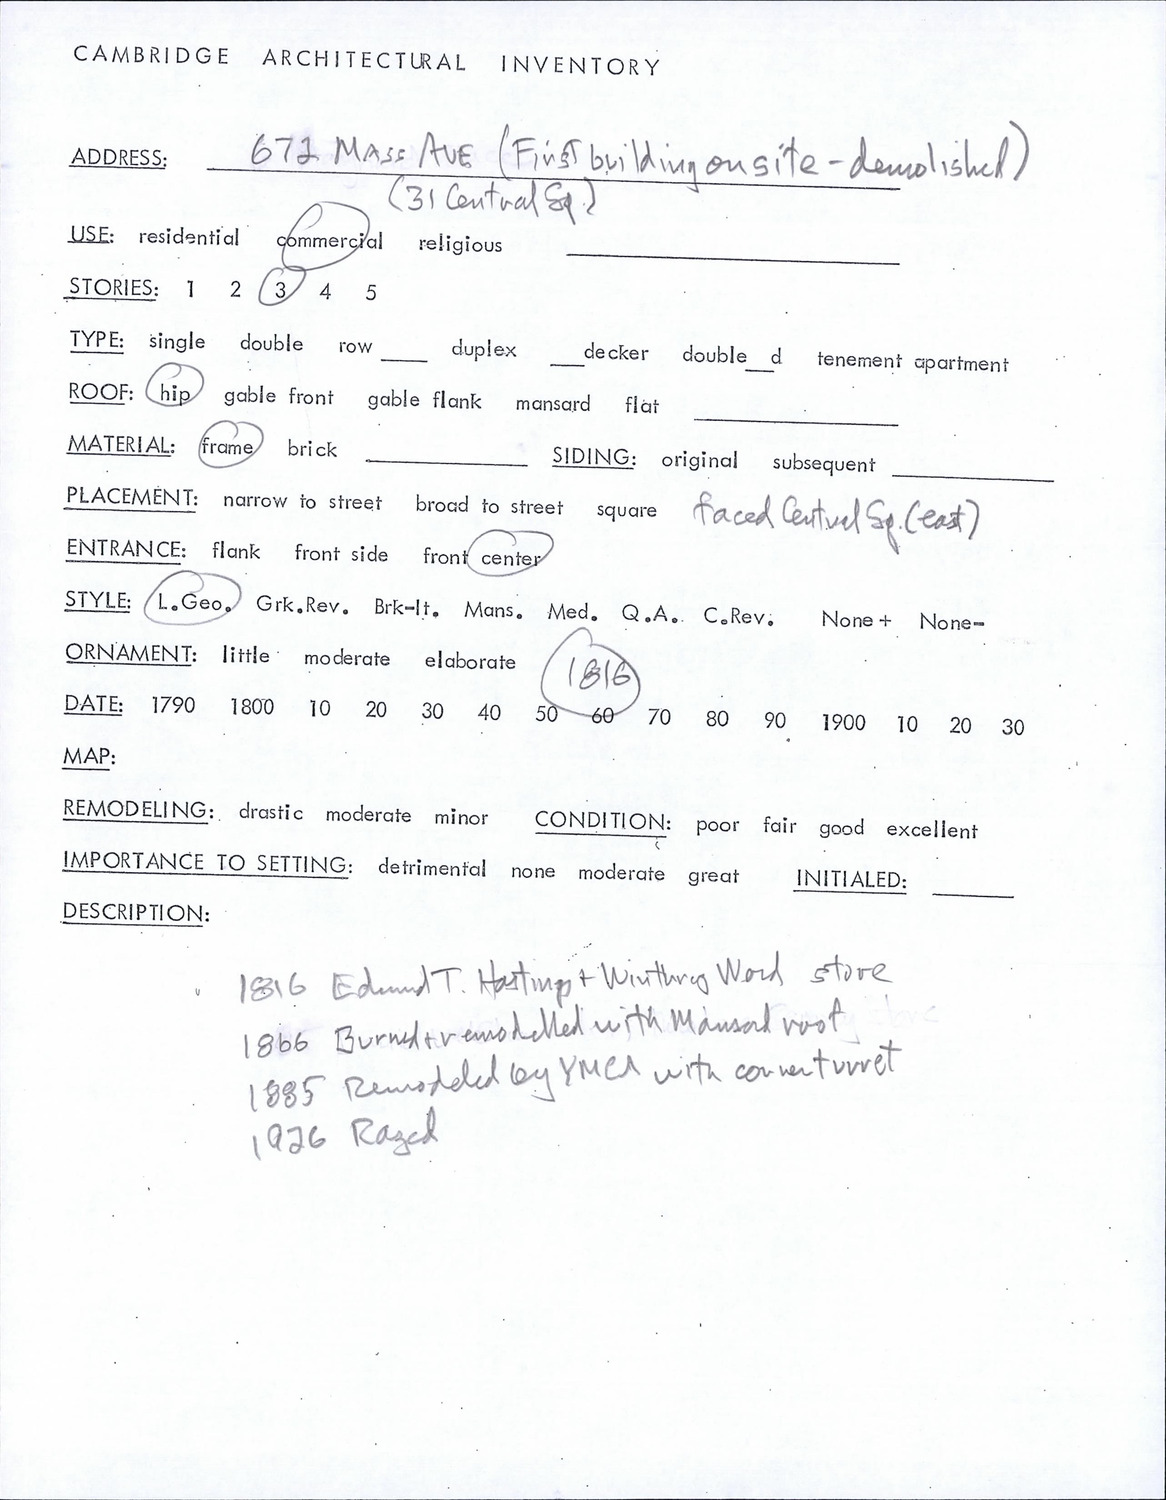 CAMBRIDGE ARCHITECTURAL INVENTORY
ADDRESS: 672 MASS AVE (First building on site - demolished)
(31 Central Sq.)
USE: residential commercial religious
STORIES: 1 2 3 4 5
TYPE: single double row ___ duplex ___decker double__d tenement apartment
ROOF: hip gable front gable flank mansard flat
MATERIAL: frame brick ___ SIDING: original subsequent ___
PLACEMENT: narrow to street broad to street square faced Central Sq. (east)
ENTRANCE: flank front side front center
STYLE: L.Geo. Grk.Rev. Brk-It. Mans. Med. Q.A. C.Rev. None+ None-
ORNAMENT: little moderate elaborate 1816
DATE: 1790 1800 10 20 30 40 50 60 70 80 90 1900 10 20 30
MAP:
REMODELING: drastic moderate minor CONDITION: poor fair good excellent
IMPORTANCE TO SETTING: detrimental none moderate great INITIALED: ___
DESCRIPTION:
1816 Edmund T. Hastings + Winthrop Ward store
1866 Burned + remodelled with Mansard roof
1885 Remodeled by YMCA with corner turret
1926 Razed